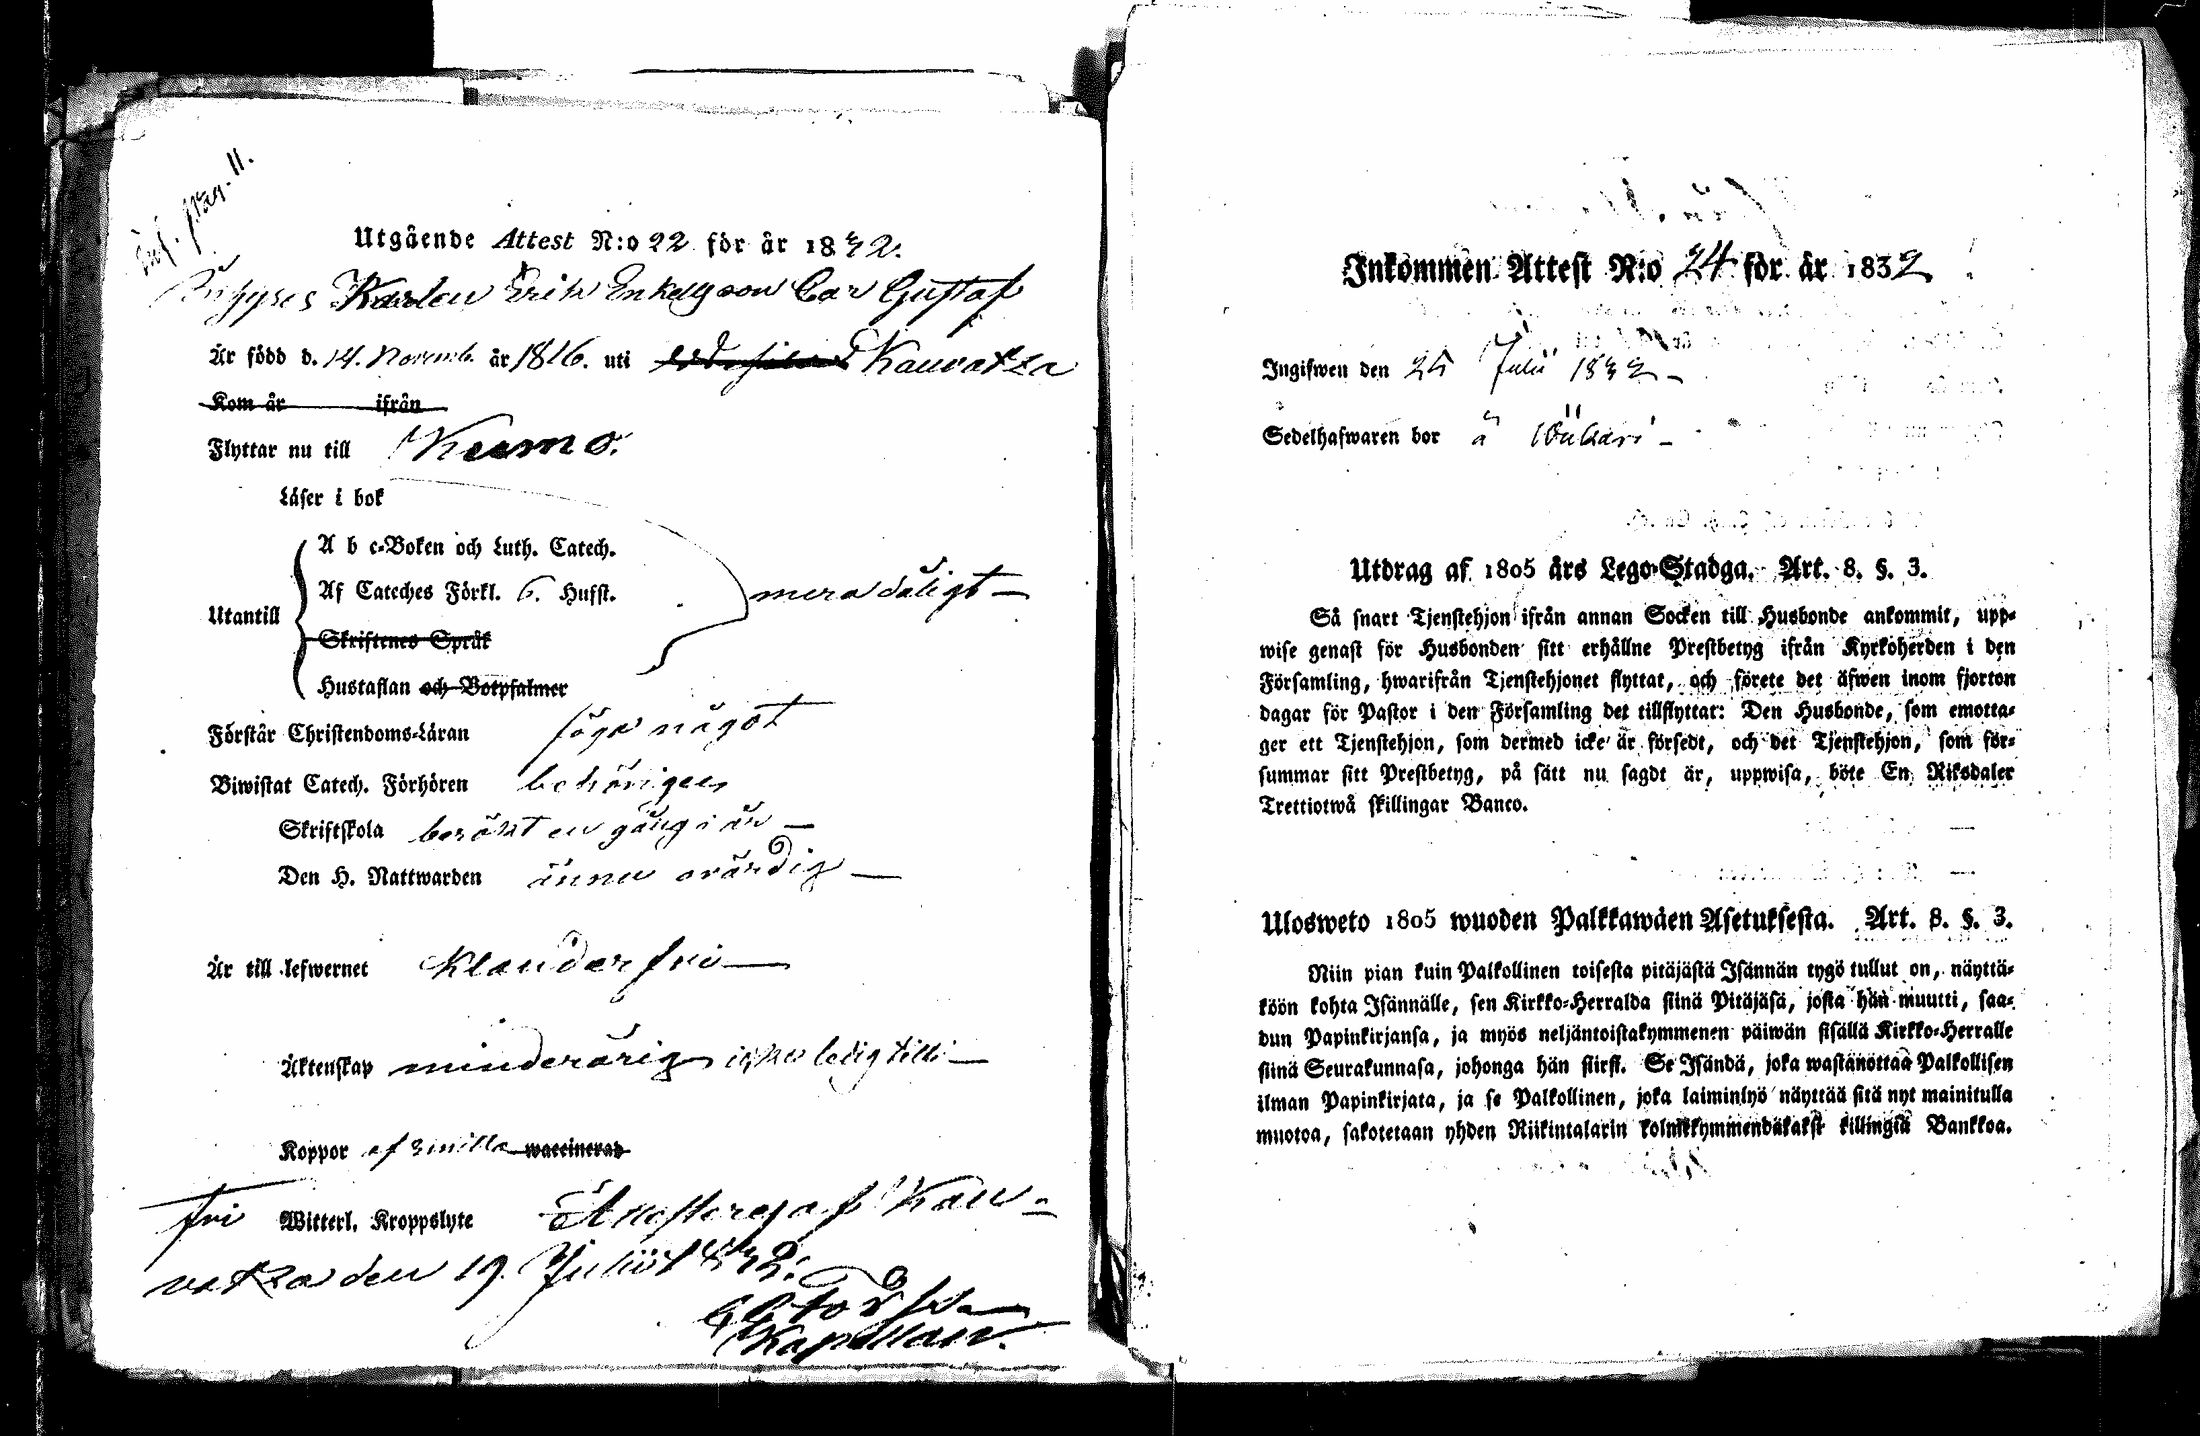 Inf. pag. 11.
Utgående Attest N:o 22 för år 1832.
Karlen Erik Enkelgson Car Gustaf
Är född d. 14. Novemb. år 1816. uti Kauvatza
Kom år ifrån
Flyttar nu till Kumo.
Läser i bok
A b c-Boken och Luth. Catech.
Af Cateches Förkl. 6. Hufst. mera dåligt —
Utantill
Skriftenes Språk
Hustaflan och Botpsalmer
Förstår Christendoms-Läran föga något
Biwistat Catech. Förhören behörigen
Skriftskola besökt en gång i år —
Den H. Nattwarden ännu ovärdig —
Är till lefwernet klanderfri —
Äktenskap minderårig icke ledig till —
Koppor af smitta waccinerad
fri Witterl. Kroppslyte Attesteras af Kau-
vatza den 19. Julii 1832.
Kapellan.
Inkommen Attest N:o 24 för år 1832
Ingifwen den 25 Julii 1832 —
Sedelhafwaren bor å
Utdrag af 1805 års Lego-Stadga. Art. 8. §. 3.
Så snart Tjenstehjon ifrån annan Socken till Husbonde ankommit, upp-
wise genast för Husbonden sitt erhållne Prestbetyg ifrån Kyrkoherden i den
Församling, hwarifrån Tjenstehjonet flyttat, och förete det äfwen inom fjorton
dagar för Pastor i den Församling det tillflyttat: Den Husbonde, som emotta-
ger ett Tjenstehjon, som dermed icke är försedt, och det Tjenstehjon, som för-
summar sitt Prestbetyg, på sätt nu sagdt är, uppwisa, böte En Riksdaler
Trettiotwå skillingar Banco.
Ulosweto 1805 wuoden Palkkawäen Asetuksesta. Art. 8. §. 3.
Niin pian kuin Palkollinen toisesta pitäjästä Isännän tygö tullut on, näyttä-
köön kohta Isännälle, sen Kirkko-Herralda siinä Pitäjäsä, josta hän muutti, saa-
dun Papinkirjansa, ja myös neljäntoistakymmenen päiwän sisällä Kirkko-Herralle
siinä Seurakunnasa, johonga hän siirsi. Se Isändä, joka wastanottaa Palkollisen
ilman Papinkirjata, ja se Palkollinen, joka laiminlyö näyttää sitä nyt mainitulla
muotoa, sakotetaan yhden Riikintalarin kolmekymmendäkaksi killingiä Bankkoa.